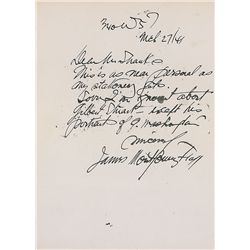 340 W 57
Mch 27/41
Dear Mr Shantz
This is as near personal as
my stationery gets
Sorry I'm ignorant about
Gilbert Stuart except his
portrait of G. Washington
Sincerely
James Montgomery Flagg